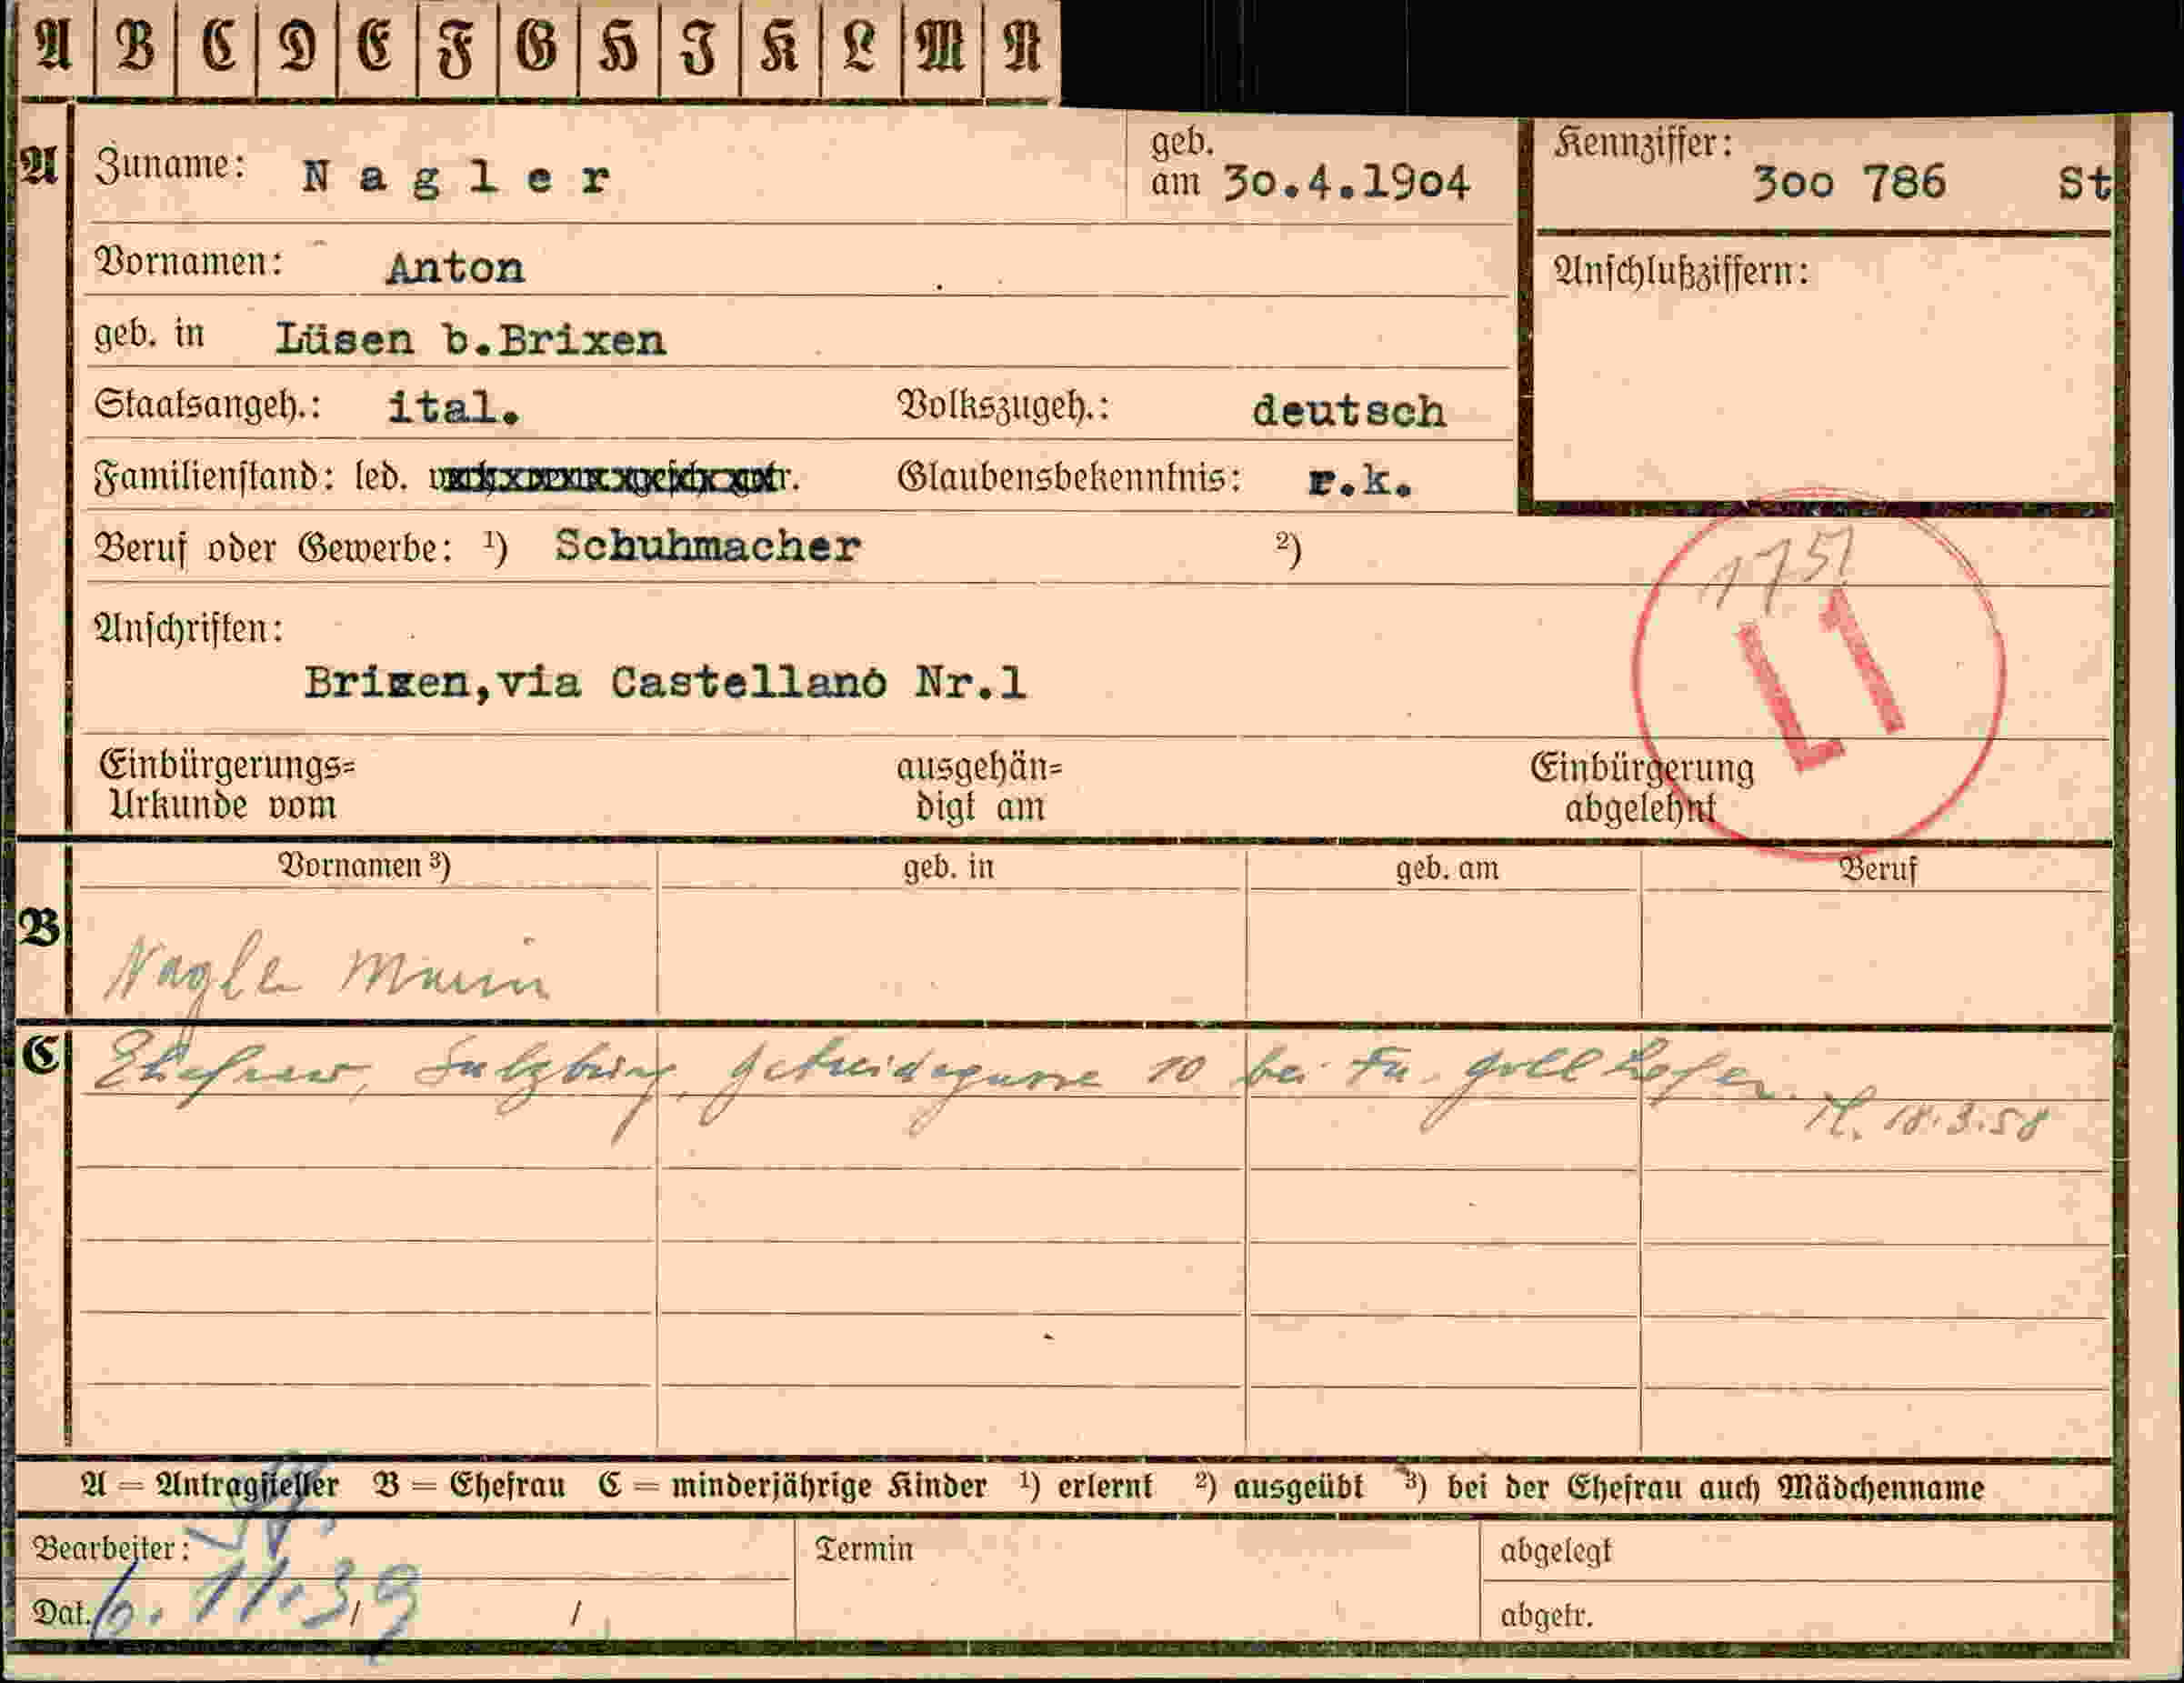 A B C D E F G H J K L M N
A Zuname: Nagler geb. am 30.4.1904 Kennziffer: 300 786 St
Vornamen: Anton Anschlußziffern:
geb. in Lüsen b.Brixen
Staatsangeh.: ital. Volkszugeh.: deutsch
Familienstand: led. Glaubensbekenntnis: r.k.
Beruf oder Gewerbe: ¹) Schuhmacher ²)
175!
Anschriften:
Brixen,via Castellano Nr.1
Einbürgerungs= ausgehän= Einbürgerung
Urkunde vom digt am abgelehnt
Vornamen ³) geb. in geb. am Beruf
B
Nagler Maria
C Ehefrau, Salzburg, Getreidegasse 10 bei Fa. Gollhofer.
18.3.58
A = Antragsteller B = Ehefrau C = minderjährige Kinder ¹) erlernt ²) ausgeübt ³) bei der Ehefrau auch Mädchenname
Bearbeiter: Termin abgelegt
Dat. 6. 11.39 / / abgetr.